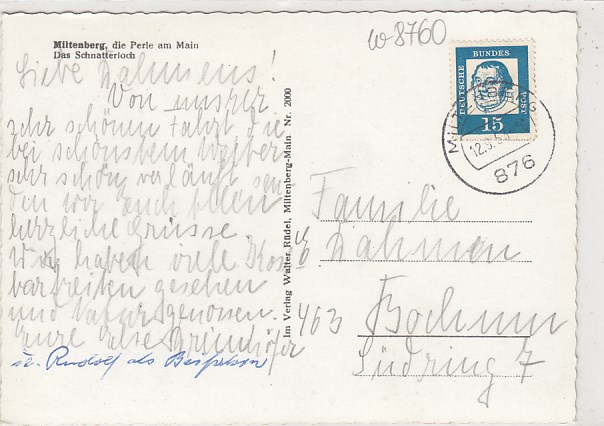 Miltenberg, die Perle am Main
Das Schnatterloch
w 8760
Liebe Dahmens!
Von unsrer
sehr schönen Fahrt, die
bei schönstem Wetter
sehr schön verläuft sen-
den wir euch allen
herzliche Grüsse.
Wir haben viele Kos-
barkeiten gesehen
und Natur genossen.
eure Else
u. Rudolf als
Im Verlag Walter Rüdel, Miltenberg-Main Nr. 2000
DEUTSCHE BUNDESPOST
15
MILT
12.9.
876
Familie
Dahmen
463 Bochum
Südring 7